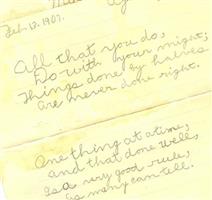 Feb. 13. 1907.
All that you do,
Do with your might;
Things done by halves
Are never done right.
One thing at a time,
and that done well,
Is a very good rule,
As many can tell.